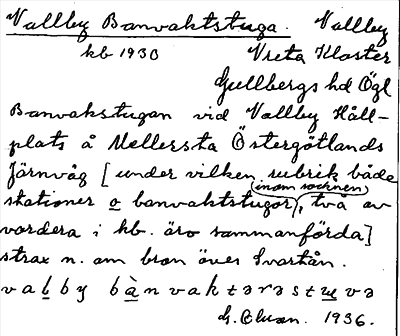 Vallby Banvaktstuga. Vallby
kb 1930 Vreta Kloster
Gullbergs hd Ögl
Banvakstugan vid Vallby Håll-
plats å Mellersta Östergötlands
Järnväg [under vilken rubrik både
(inom socknen)
stationer o banvaktstugor, två av
vardera i kb. äro sammanförda]
strax n. om bron över Svartån.
valby bànvaktərəstuvə
1936.